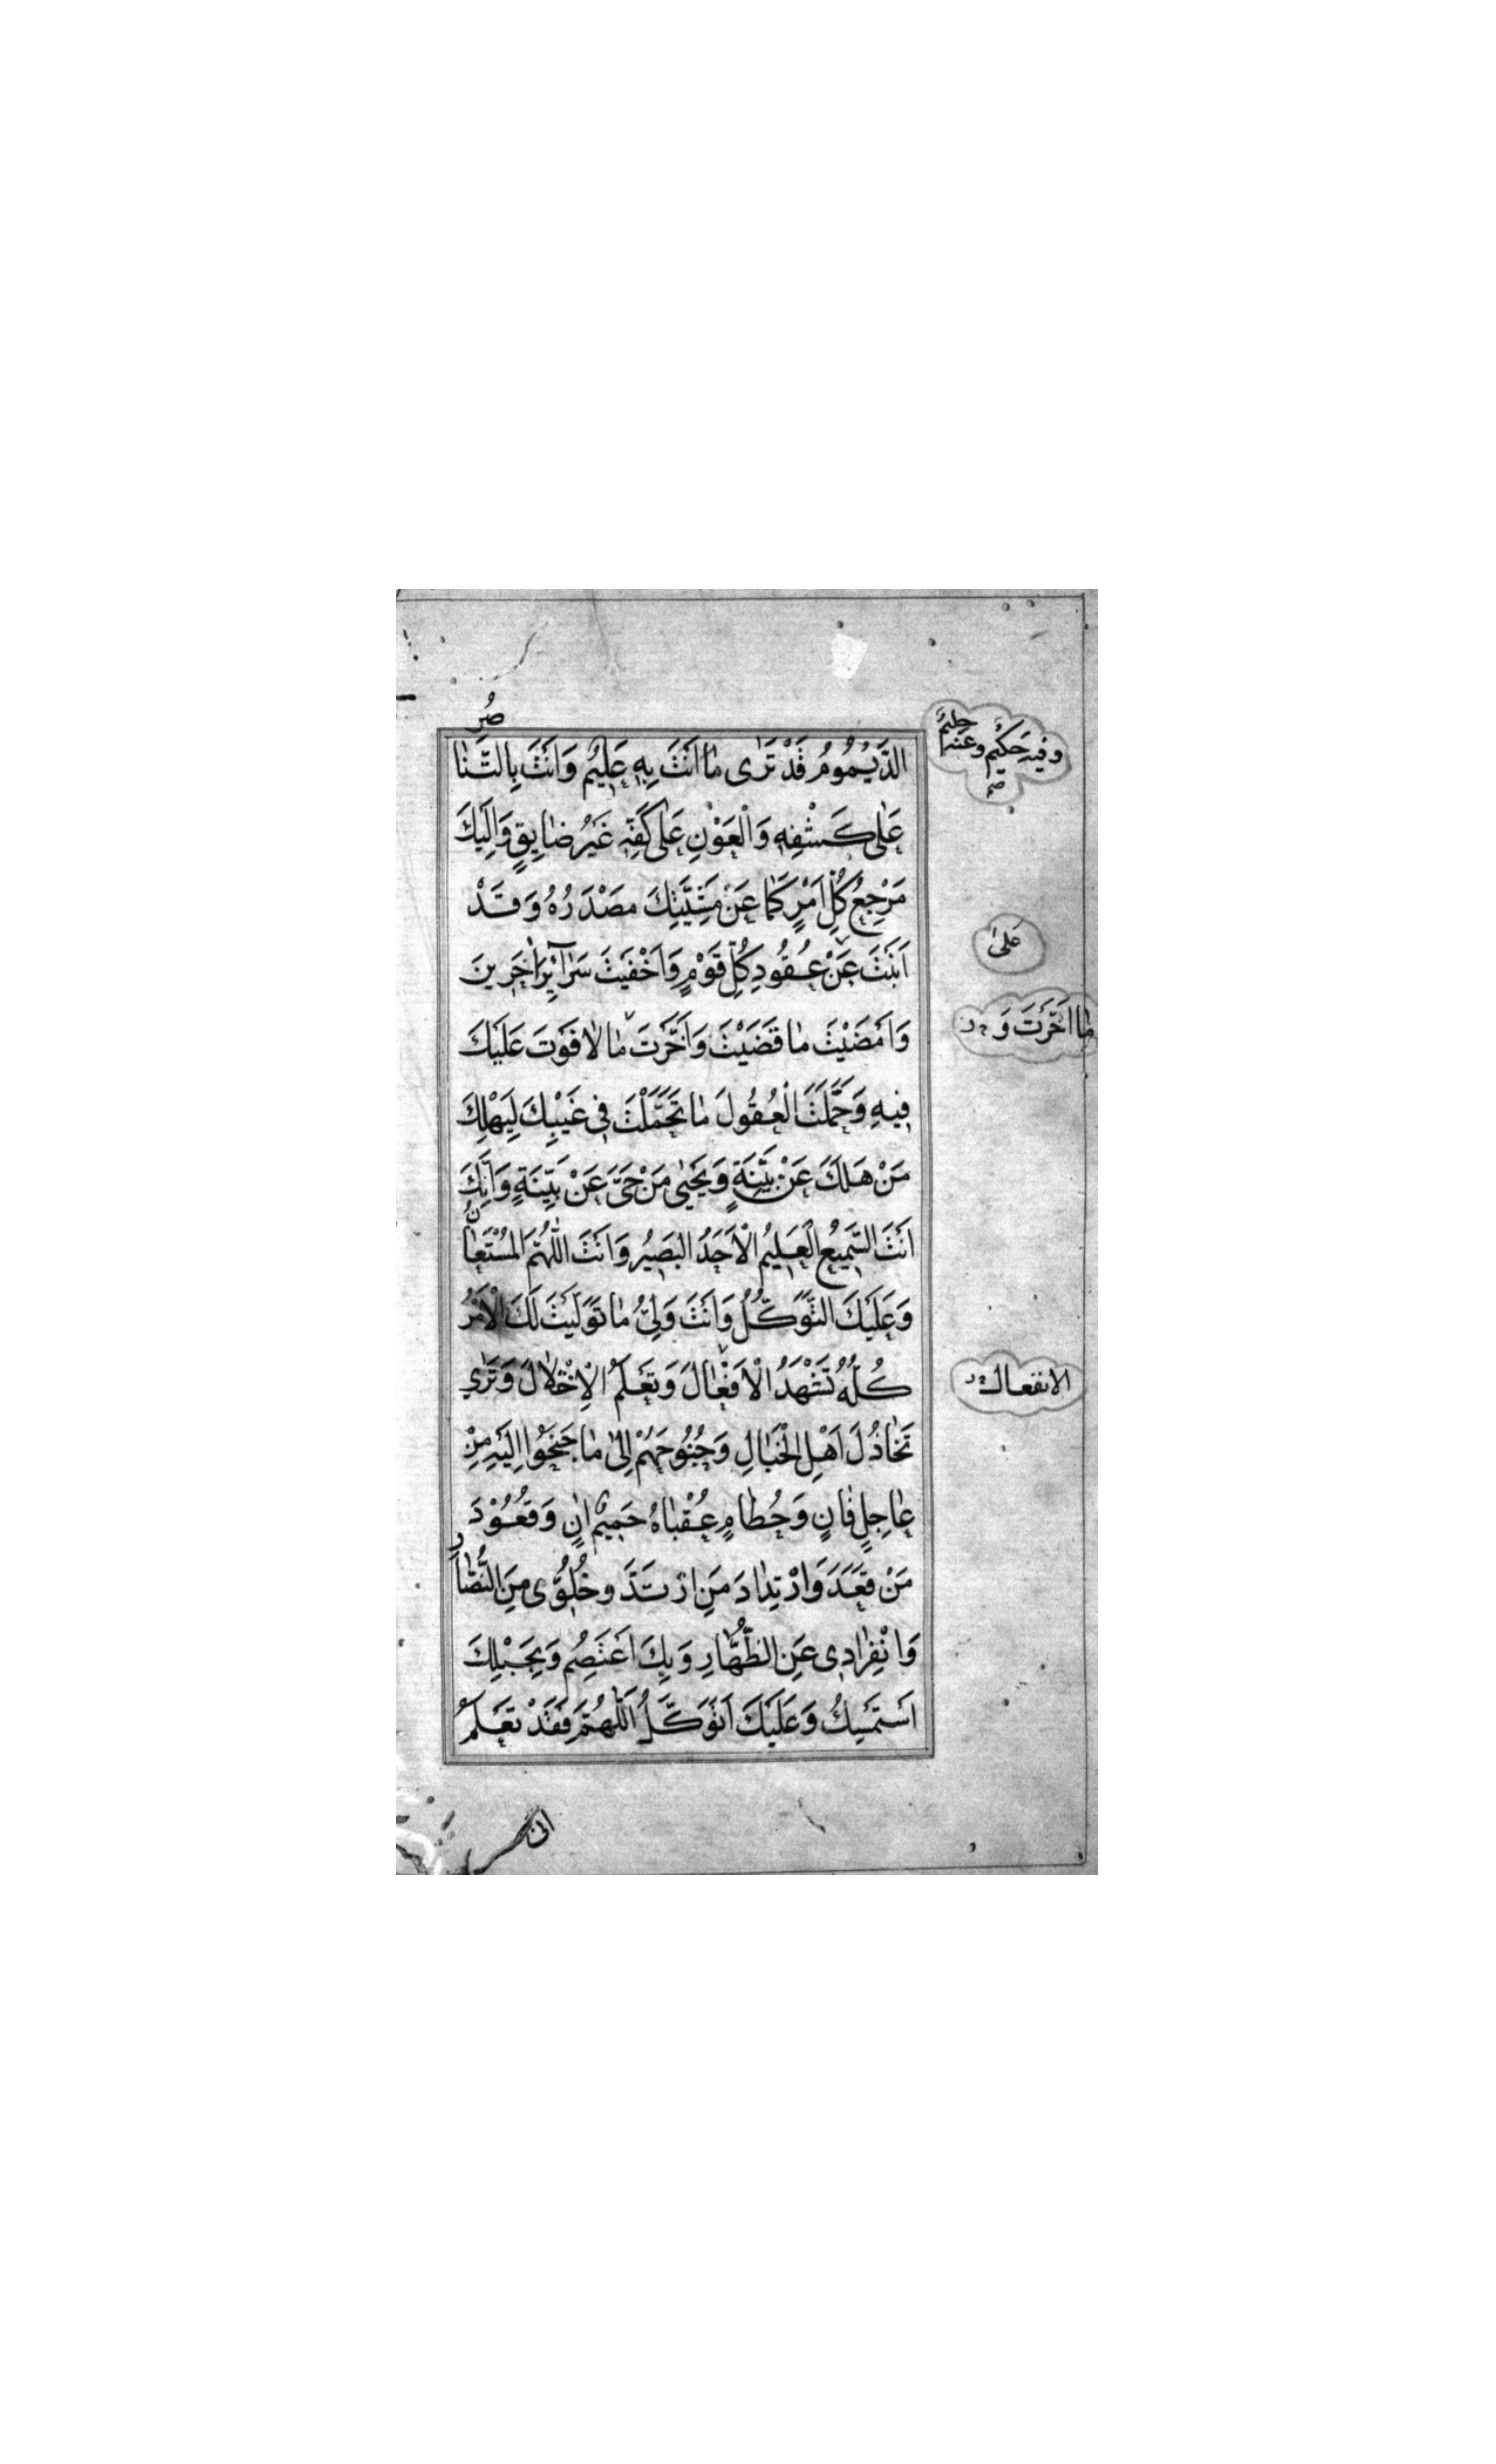 وفيه حكيم وعنه حليم
صر
الدَّيْمُومُ قَدْ تَرٰى مٰا اَنْتَ بِهِ عَلِيمٌ وَاَنْتَ بِالتَّنٰا
عَلٰى كَشْفِهِ وَالْعَوْنِ عَلٰى كَفِّهِ غَيْرُ ضٰايِقٍ وَاِلَيْكَ
مَرْجِعُ كُلِّ اَمْرٍ كَمٰا عَنْ مَشِيَّتِكَ مَصْدَرُهُ وَقَدْ
اَبَنْتَ عَنْ عُقُودِ كُلِّ قَوْمٍ وَاَخْفَيْتَ سَرٰآئِرَ اٰخَرِينَ
عَلىٰ
وَاَمْضَيْتَ مٰا قَضَيْتَ وَاَخَّرْتَ مٰا لٰا فَوْتَ عَلَيْكَ
مٰا اَخَّرْتَ وَ
فِيهِ وَحَمَّلْتَ الْعُقُولَ مٰا تَحَمَّلَتْ فِى غَيْبِكَ لِيَهْلِكَ
مَنْ هَلَكَ عَنْ بَيِّنَةٍ وَيَحْيٰى مَنْ حَىَّ عَنْ بَيِّنَةٍ وَاِنَّكَ
اَنْتَ السَّمِيعُ الْعَلِيمُ الْاَحَدُ الْبَصِيرُ وَاَنْتَ اللّٰهُمَّ الْمُسْتَعٰانُ
وَعَلَيْكَ التَّوَكُّلُ وَاَنْتَ وَلِىُّ مٰا تَوَلَّيْتَ لَكَ الْاَمْرُ
كُلُّهُ تَشْهَدُ الْاَفْعٰالَ وَتَعْلَمُ الْاِخْتِلٰالَ وَتَرٰى
الانفعال
تَخٰاذُلَ اَهْلِ الْخَبٰالِ وَجُنُوحَهُمْ اِلىٰ مٰا جَنَحُوا اِلَيْهِ مِنْ
عٰاجِلٍ فٰانٍ وَحُطٰامٍ عُقْبٰاهُ حَمِيمٌ اٰنٍ وَقُعُودَ
مَنْ قَعَدَ وَارْتِدٰادَ مَنِ ارْتَدَّ وخُلُوِّى مِنَ النُّصّٰارِ
وَانْفِرٰادِى عَنِ الظُّهّٰارِ وَبِكَ اَعْتَصِمُ وَبِحَبْلِكَ
اَسْتَمْسِكُ وَعَلَيْكَ اَتَوَكَّلُ اَللّٰهُمَّ فَقَدْ تَعْلَمُ
انى